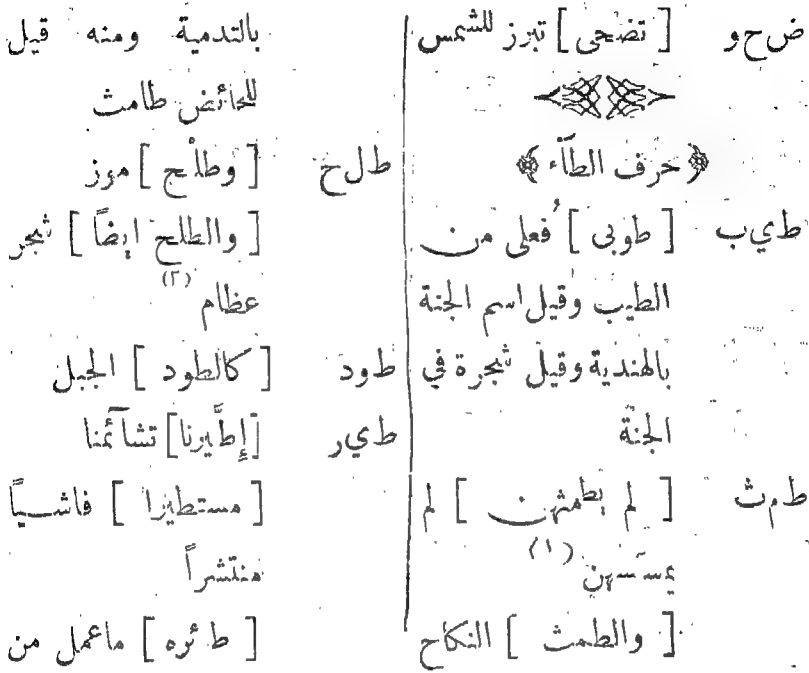 ض ح و [ تضحى ] تبرز للشمس
﴿ حرف الطآء ﴾
ط ي ب [ طوبى ] فُعلى من
الطيب وقيل اسم الجنة
بالهندية وقيل شجرة في
الجنة
ط م ث [ لم يطمثهن ] لم
يمسسهن (١)
[ والطمث ] النكاح
بالتدمية ومنه قيل
للحائض طامث
ط ل ح [ وطلْح ] موز
[ والطلح ايضاً ] شجر
عظام (٢)
ط و د [ كالطود ] الجبل
ط ي ر [إِطَّيرنا] تشآئمنا
[ مستطيرا ] فاشياً
منتشراً
[ طائره ] ماعمل من